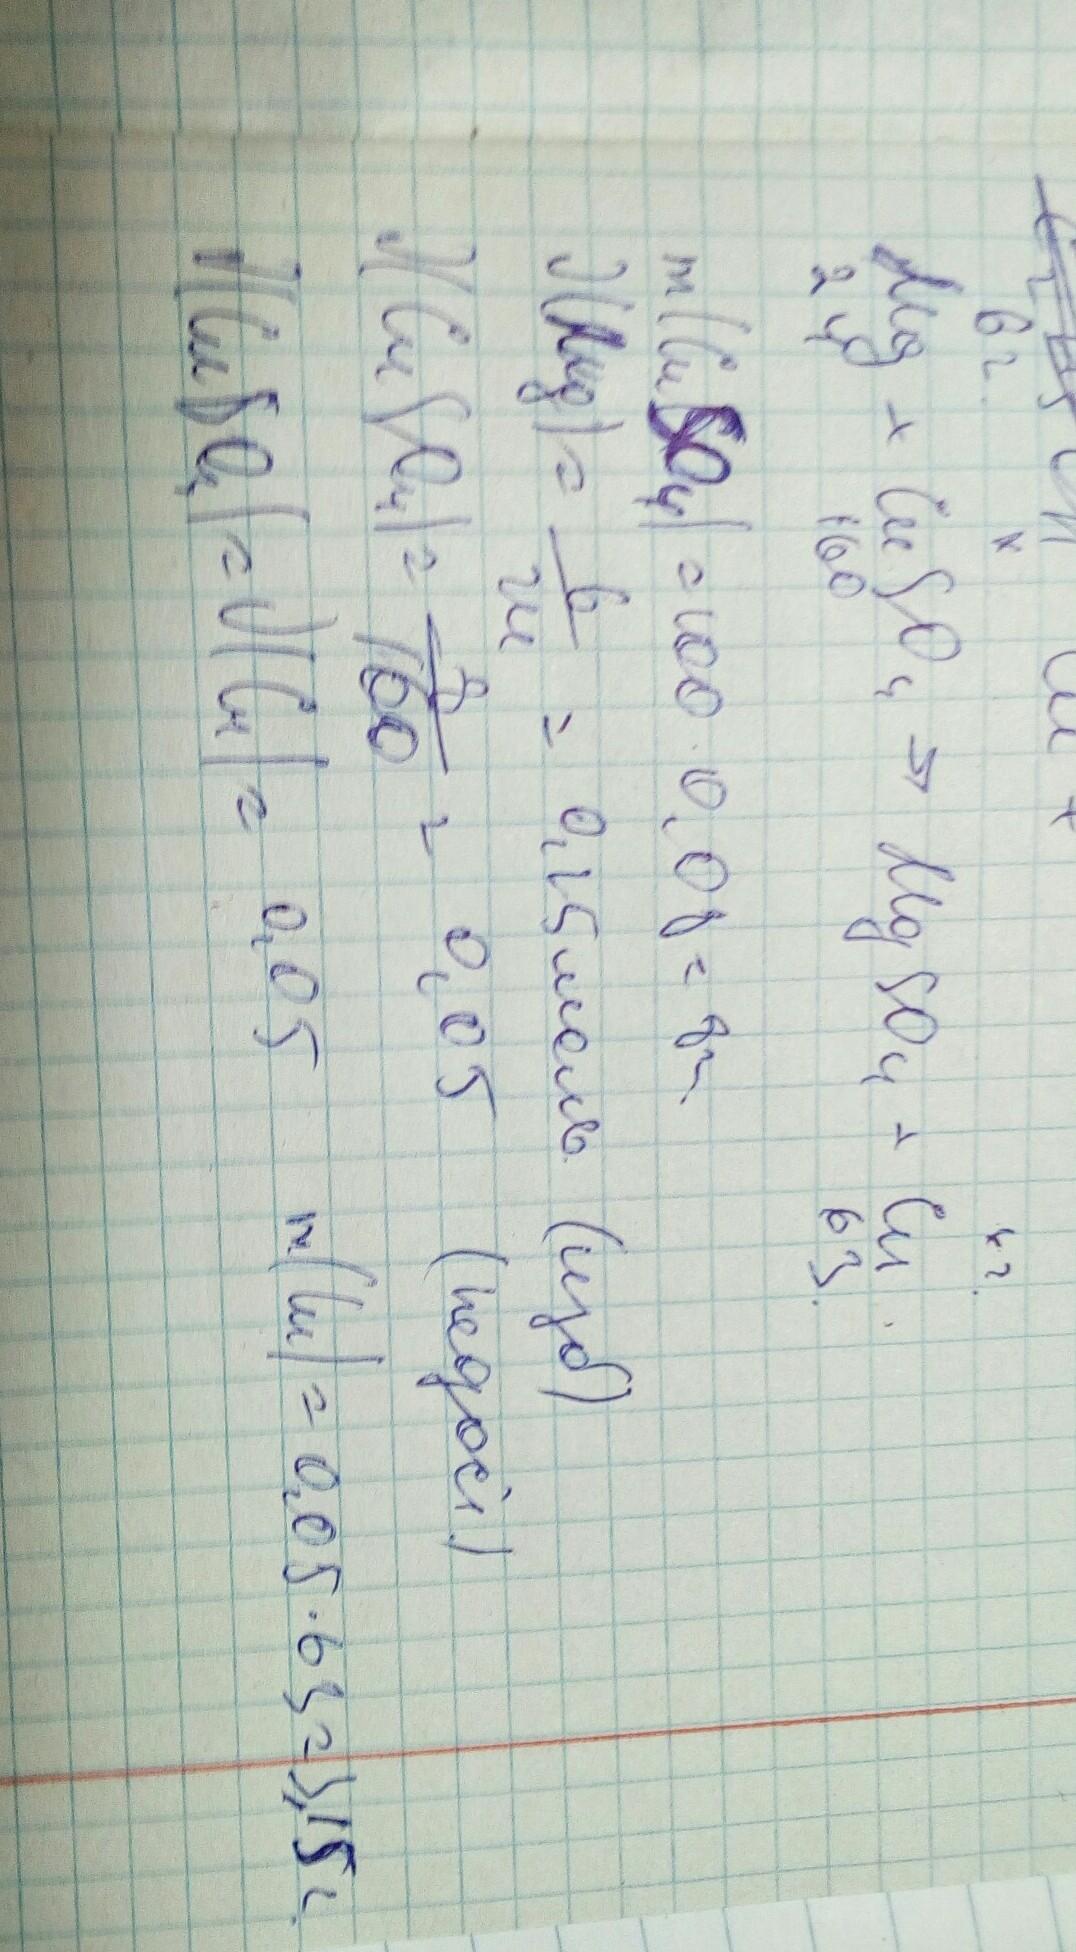 6г. x xг.
Mg + CuSO₄ → MgSO₄ + Cu
24 160 63.
m(CuSO₄) = 100 · 0,08 = 8г.
ν(Mg) = 6/24 = 0,25 моль (изб)
ν(CuSO₄) = 8/160 = 0,05 (недост)
ν(CuSO₄) = ν(Cu) = 0,05 m(Cu) = 0,05 · 63 = 3,15 г.